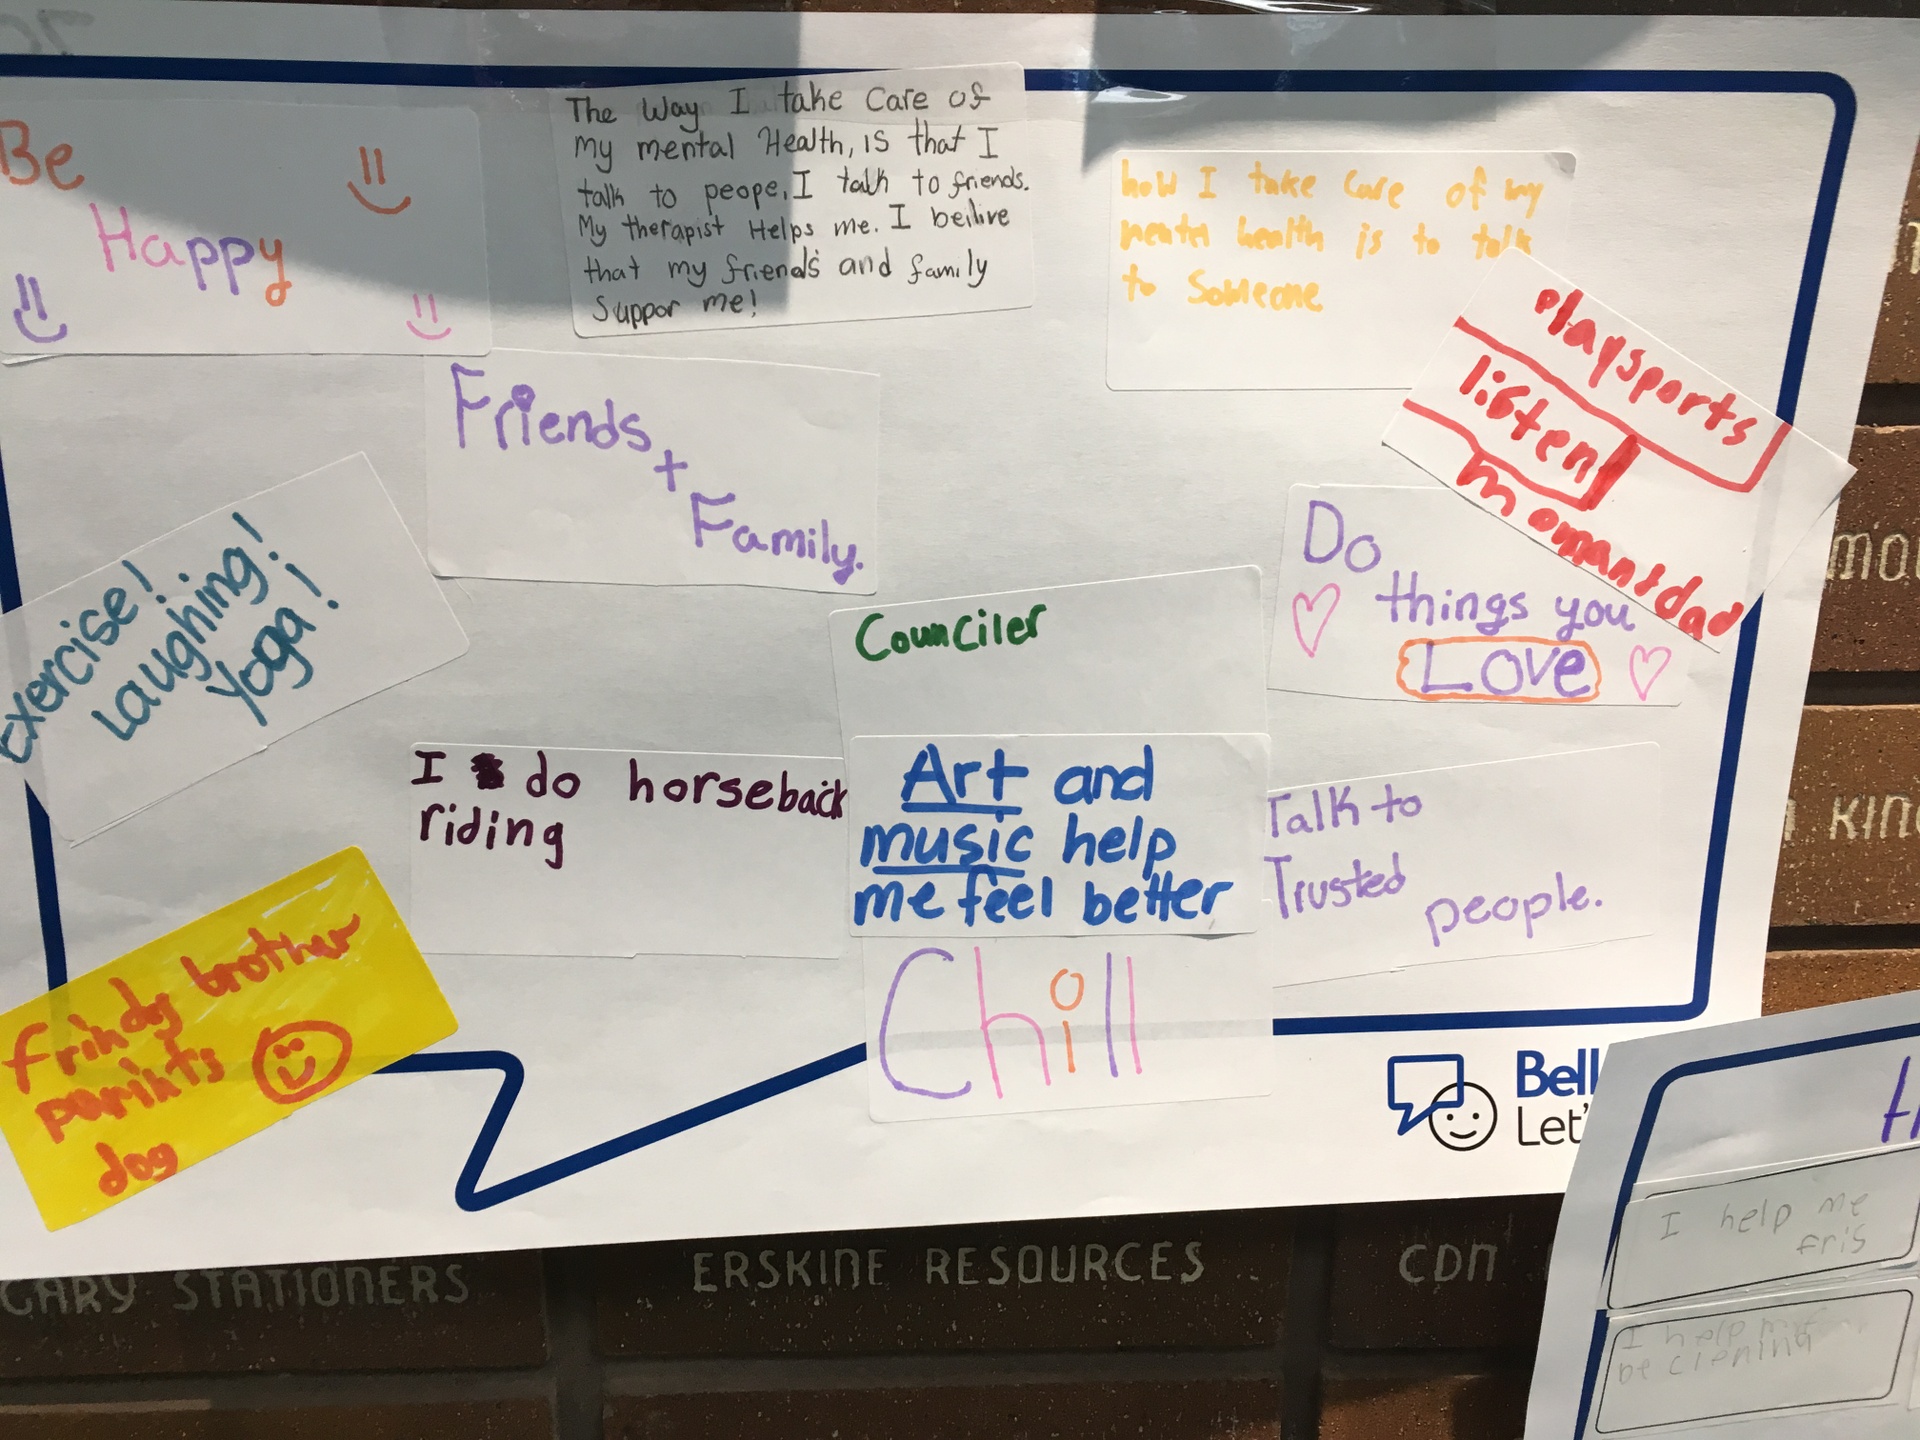 Be
Happy
The Way I take Care of
my mental Health, is that I
talk to peope, I talk to friends.
My therapist Helps me. I beilive
that my friends and family
Suppor me!
how I take Care of my
mental health is to talk
to Someone
playsports
listen
momantdad
Friends
+
Family.
Do
things you
Love
Exercise!
Laughing!
Yoga!
Counciler
I do horseback
riding
Art and
music help
me feel better
Talk to
Trusted
people.
brother
parints
dog
Chill
Bell
Let'
I help me
fris
I help me
be clening
GARY STATIONERS
ERSKINE RESOURCES
CDN
KING